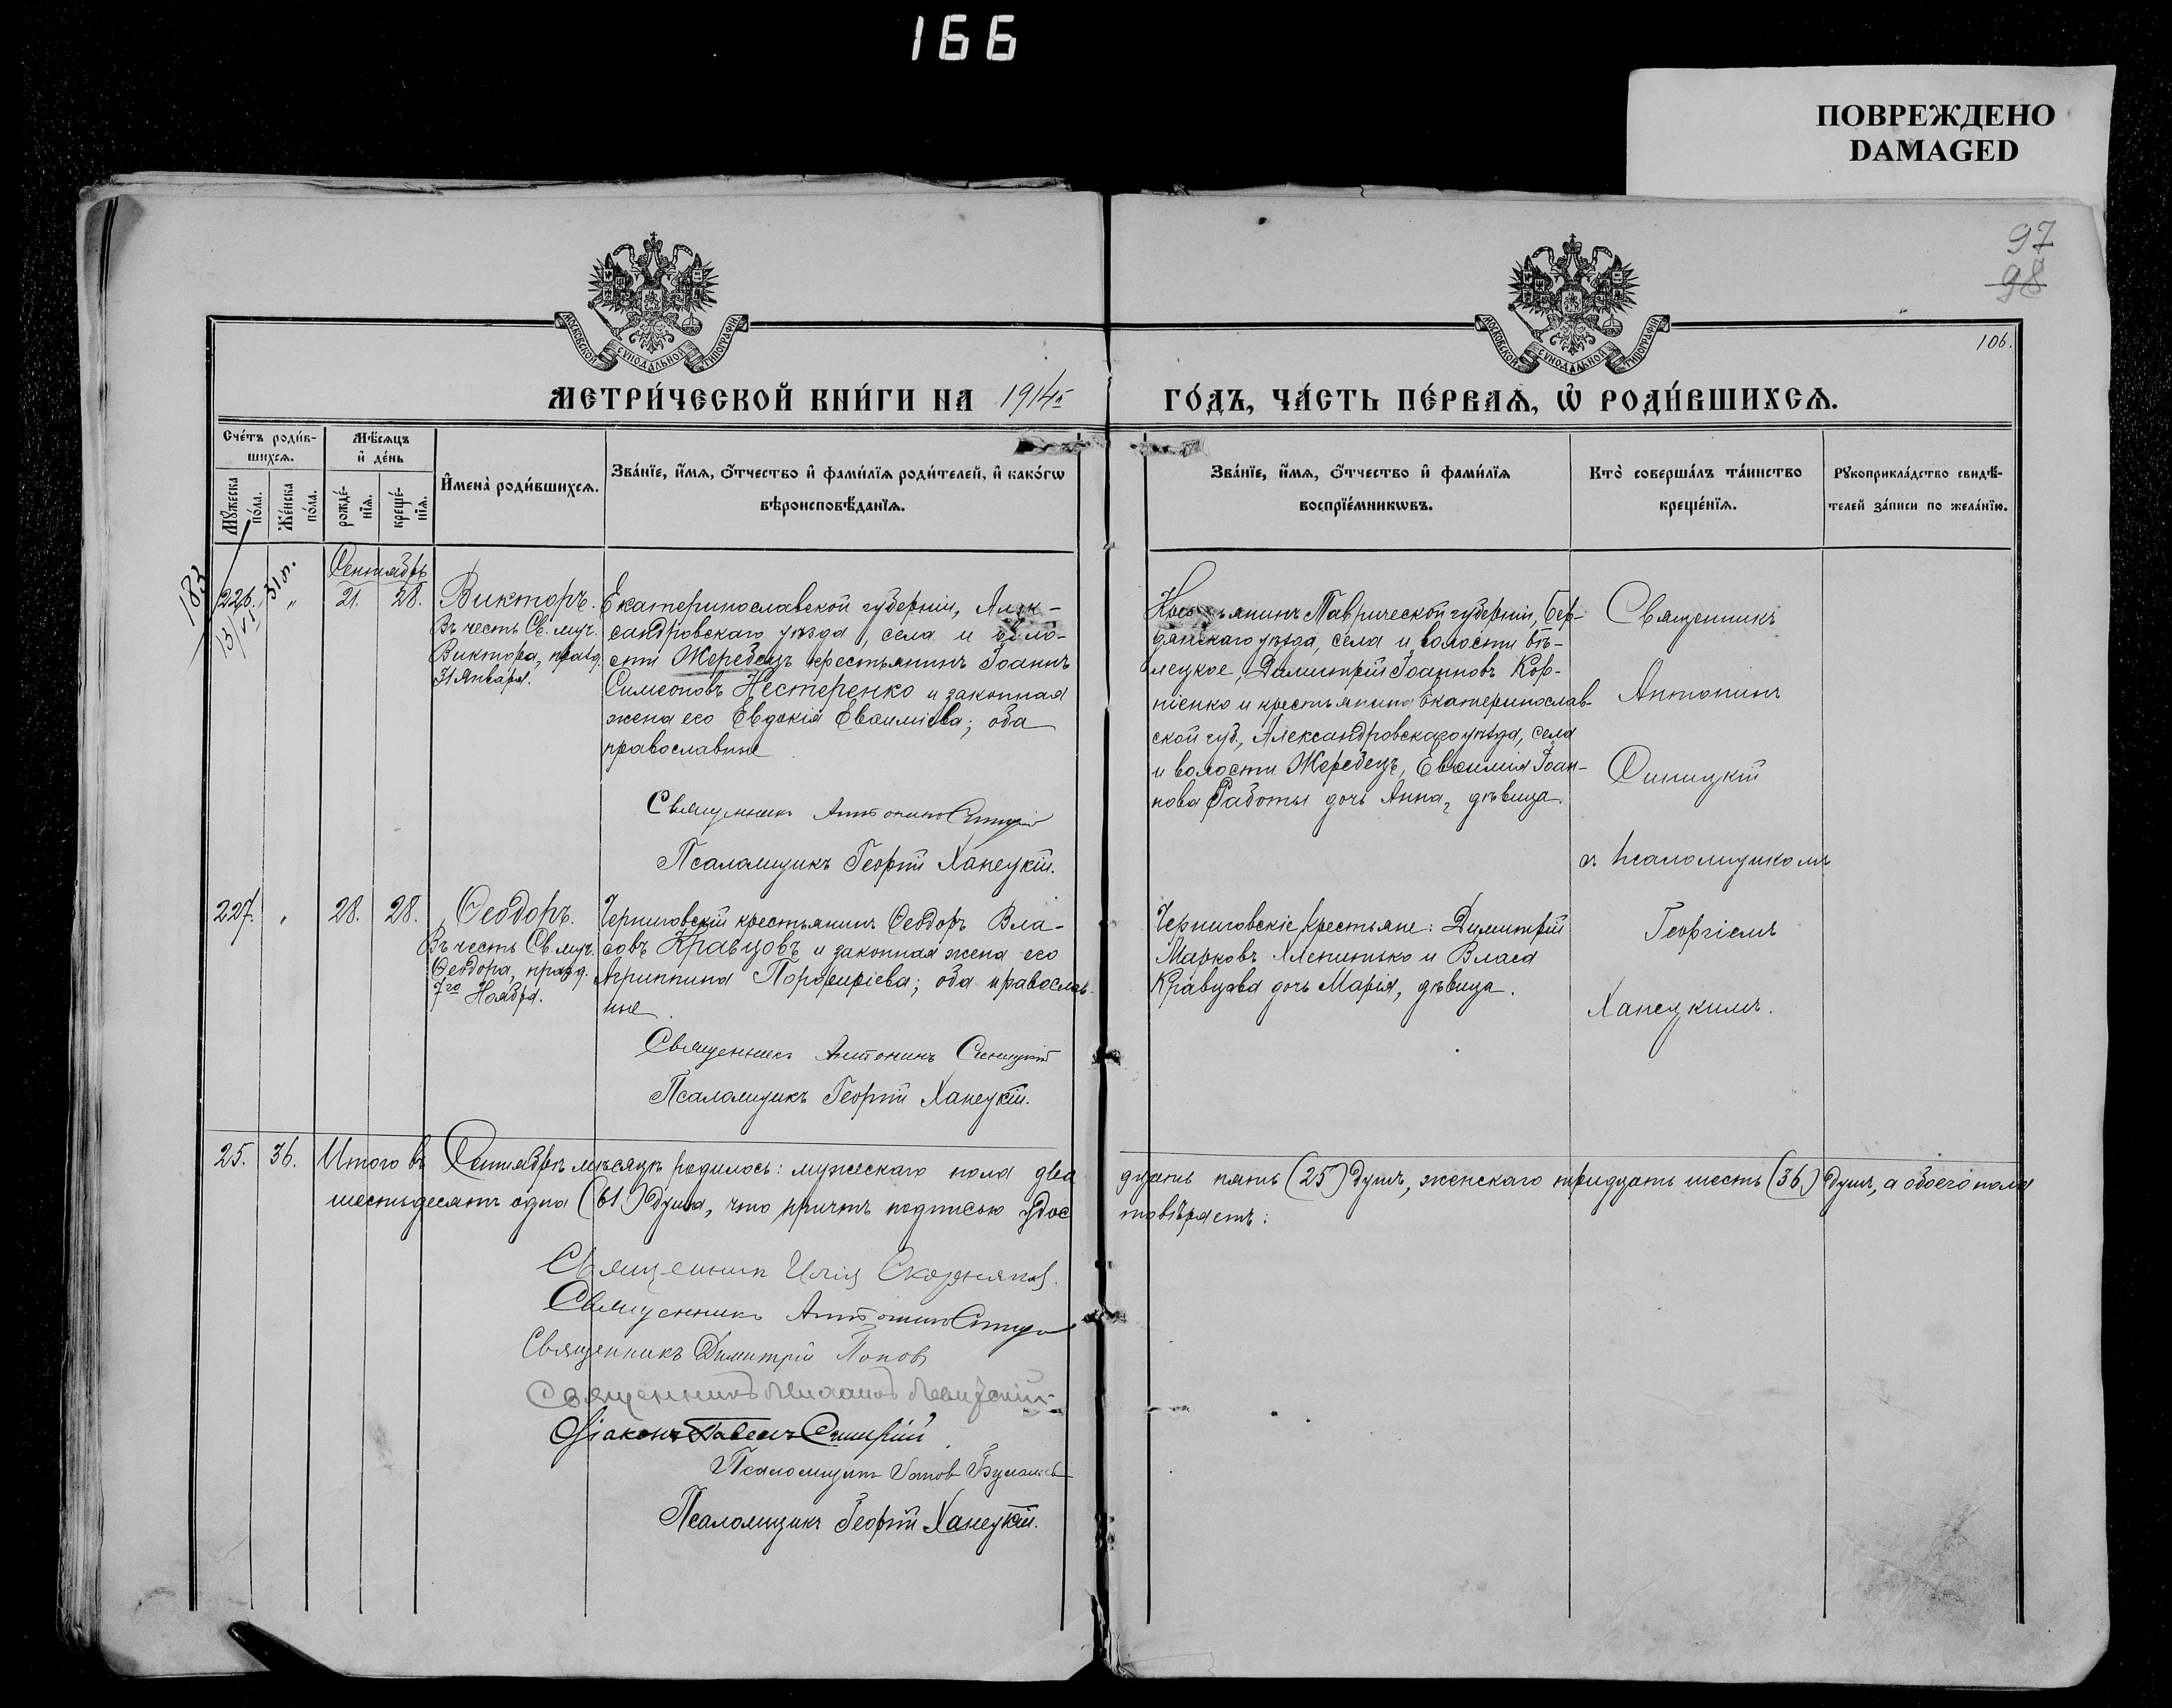 166
ПОВРЕЖДЕНО
DAMAGED
97
98
106.
МОСКОВСКОЙ СѴНОДАЛЬНОЙ ТИПОГРАФІИ
МОСКОВСКОЙ СѴНОДАЛЬНОЙ ТИПОГРАФІИ
МЕТРИ́ЧЕСКОЙ КНИ́ГИ НА 1914й
ГО́ДЪ, ЧА́СТЬ ПЕ́РВАѦ, Ѡ҆ РОДИ́ВШИХСѦ.
Сче́тъ роди́в-
шихсѧ.
Мѣ́сѧцъ
и҆ де́нь
Мꙋ́жеска
по́ла.
Же́нска
по́ла.
рожде́-
нїѧ.
креще́-
нїѧ.
И҆мена̀ роди́вшихсѧ.
Зва́нїе, и҆́мѧ, ѻ҆́тчество и҆ фами́лїѧ роди́телей, и҆ како́гѡ
вѣроисповѣ́данїѧ.
Зва́нїе, и҆́мѧ, ѻ҆́тчество и҆ фами́лїѧ
воспрїе́мникѡвъ.
Кто̀ соверша́лъ та́инство
креще́нїѧ.
Рꙋкоприкла́дство свидѣ́-
телей за́писи по жела́нїю.
183
Сентябрь
226. „ 21. 28. Викторъ.
Въ честь Св. муч.
Виктора, празд.
31 Января.
Екатеринославской губерніи, Алек-
сандровскаго уѣзда, села и воло-
сти Жеребецъ крестьянинъ Іоаннъ
Симеоновъ Нестеренко и законная
жена его Евдокія Евѳиміева; оба
православные
Священникъ Антонинъ Синицкій
Псаломщикъ Георгій Ханецкій.
Крестьянинъ Таврической губерніи, Бер-
дянскаго уѣзда, села и волости
Димитрій Іоанновъ Кор-
ніенко и крестьянина Екатеринослав-
ской губ., Александровскаго уѣзда, села
и волости Жеребецъ, Евѳимія Іоан-
нова Работы дочь Анна, дѣвица.
Священникъ
Антонинъ
Синицкій
съ псаломщикомъ
Георгіемъ
Ханецкимъ.
227. „ 28. 28. Ѳеодоръ.
Въ честь Св. муч.
Ѳеодора, празд.
7го Ноября.
Черниговскій крестьянинъ Ѳеодоръ Вла-
совъ Кравцовъ и законная жена его
Агриппина Порфиріева; оба православ-
ные.
Священникъ Антонинъ Синицкій
Псаломщикъ Георгій Ханецкій.
Черниговскіе крестьяне: Димитрій
Марковъ и Власа
Кравцова дочь Марія, дѣвица.
25. 36. Итого въ Сентябрѣ мѣсяцѣ родилось: мужескаго пола два
дцать пять (25) душъ, женскаго тридцать шесть (36) душъ, а обоего пола
шестьдесятъ одна (61) душа, что причтъ подписью удос
товѣряетъ:
Священникъ Илія Скорняковъ.
Священникъ Антонинъ Синицкій
Священникъ Димитрій Поповъ
Священникъ
Діаконъ Павелъ
Псаломщикъ
Псаломщикъ Георгій Ханецкій.